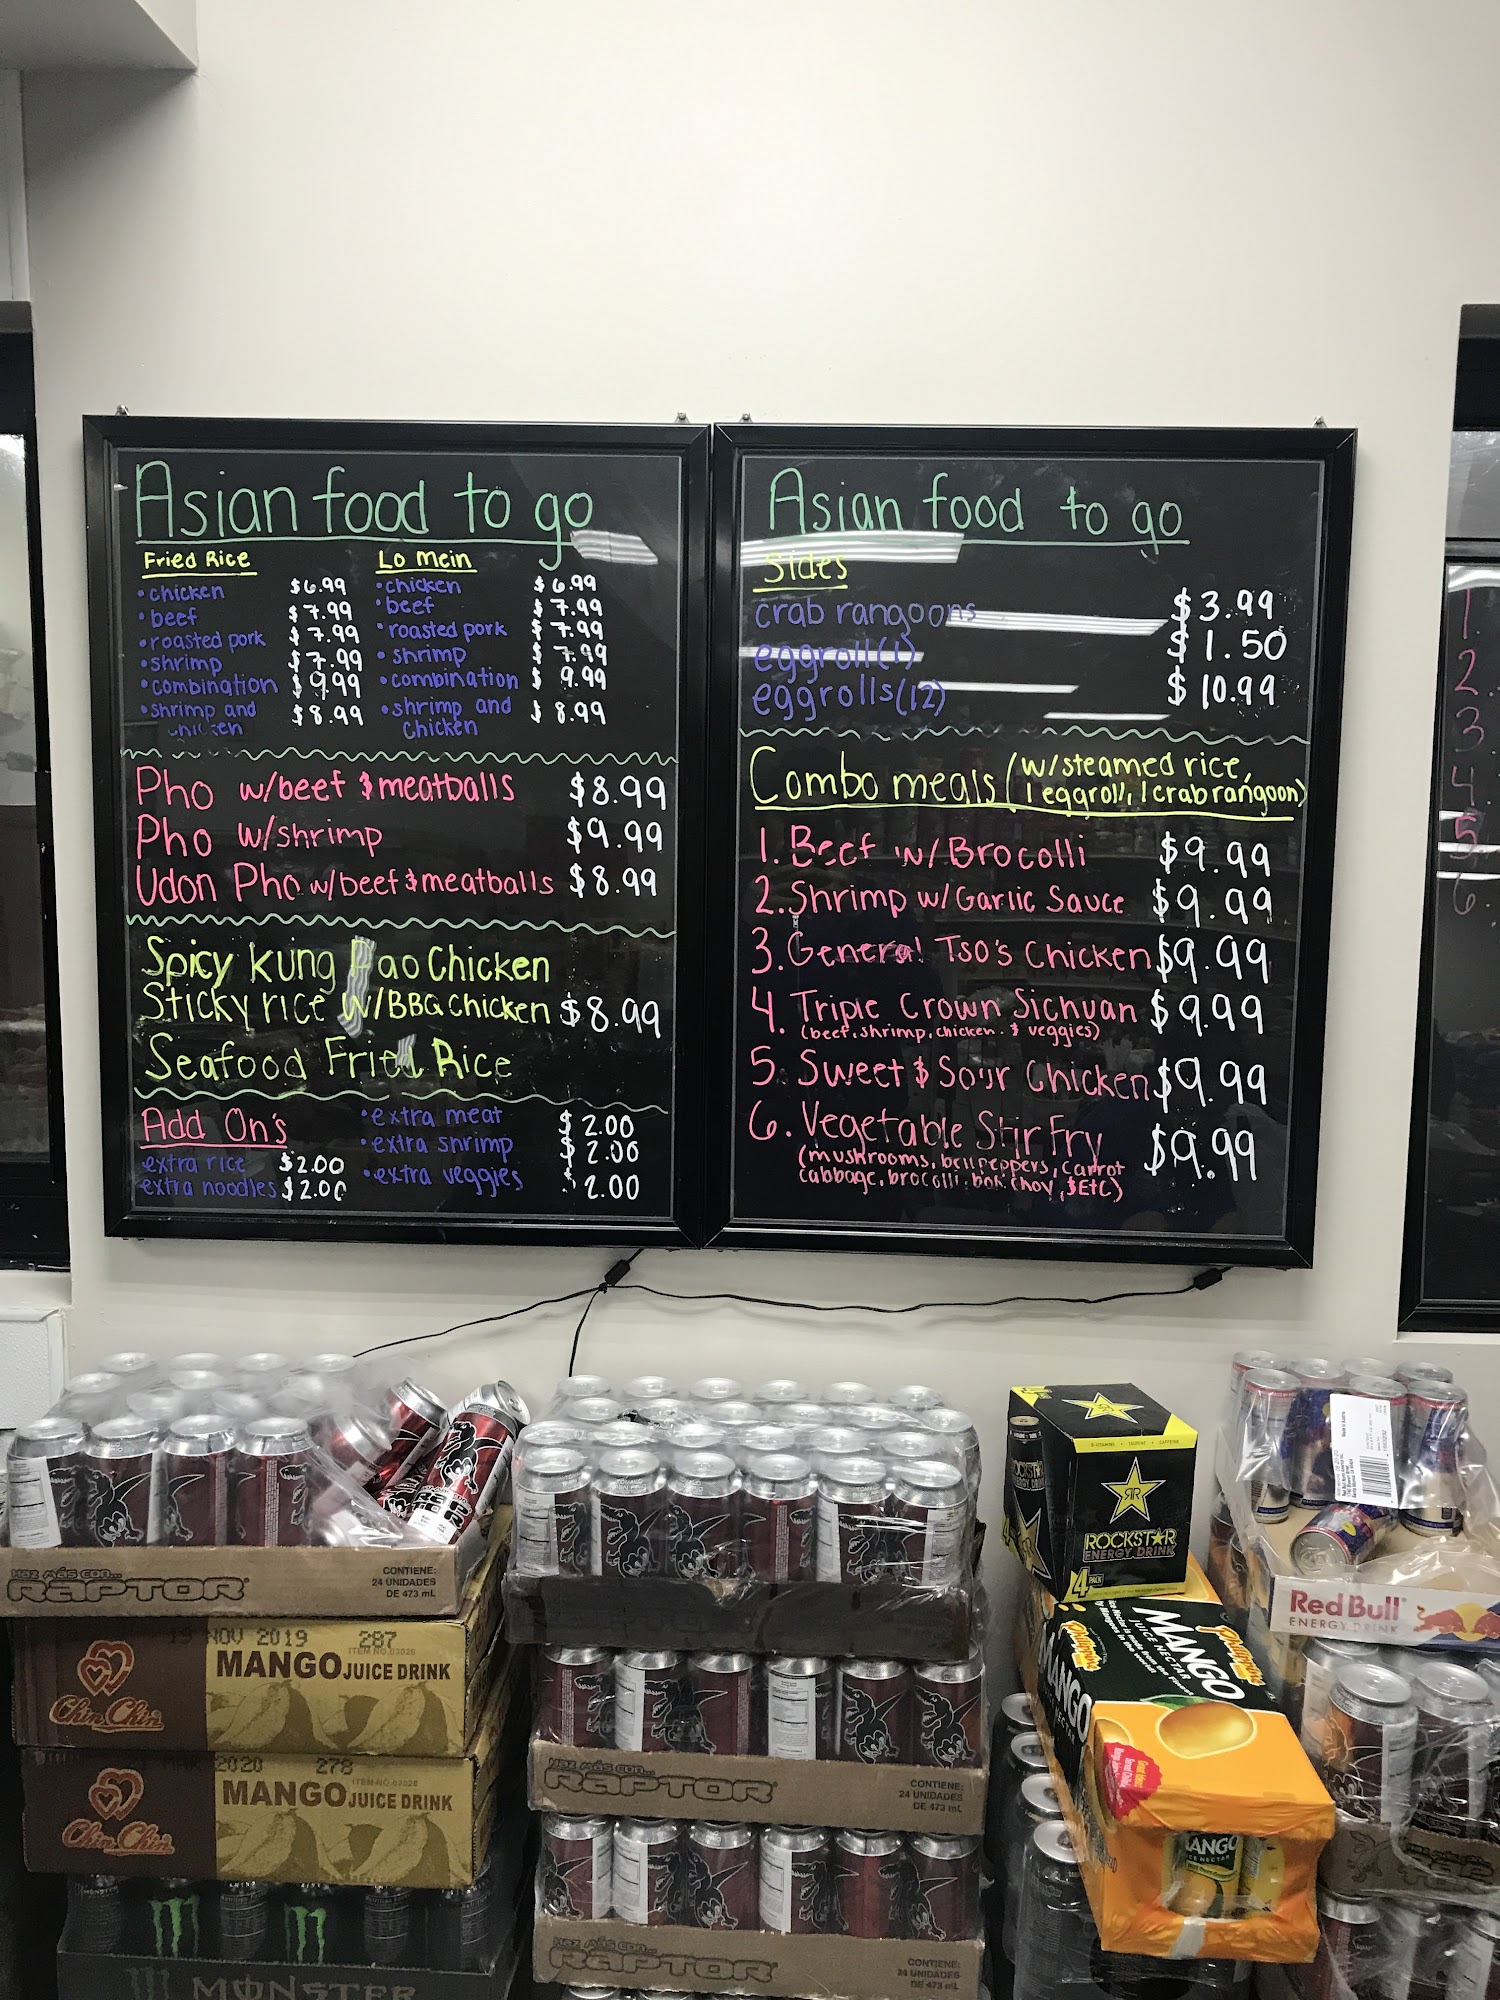 Asian food to go
Fried Rice
• chicken $6.99
• beef $7.99
• roasted pork $7.99
• shrimp $7.99
• combination $9.99
• shrimp and $8.99
chicken
Lo Mein
• chicken $6.99
• beef $7.99
• roasted pork $7.99
• shrimp 7.99
• combination $9.99
• shrimp and $8.99
chicken
Pho w/beef & meatballs $8.99
Pho w/shrimp $9.99
Udon Pho w/beef & meatballs $8.99
Spicy Kung Pao Chicken
Sticky rice w/BBQ Chicken $8.99
Seafood Fried Rice
Add On's
extra rice $2.00
extra noodles $2.00
• extra meat $2.00
• extra shrimp $2.00
• extra veggies 2.00
Asian food to go
Sides
crab rangoons $3.99
eggroll(1) $1.50
eggrolls(12) $10.99
Combo meals (w/steamed rice,
1 eggroll, 1 crab rangoon)
1. Beef w/ Brocolli $9.99
2. Shrimp w/ Garlic Sauce $9.99
3. General Tso's Chicken $9.99
4. Triple Crown Sichuan $9.99
(beef, shrimp, chicken & veggies)
5. Sweet & Sour Chicken $9.99
6. Vegetable Stir Fry $9.99
(mushrooms, bell peppers, carrot
cabbage, brocolli, bok choy, & Etc)
1.
2.
3.
4.
5.
6.
HAZ MÁS CON...
RAPTOR
CONTIENE:
24 UNIDADES
DE 473 mL
19 NOV 2019 287
ITEM NO.03028
MANGO JUICE DRINK
Chin Chin
2020 278
ITEM NO.03028
MANGO JUICE DRINK
Chin Chin
MONSTER
HAZ MÁS CON...
RAPTOR
CONTIENE:
24 UNIDADES
DE 473 mL
HAZ MÁS CON...
RAPTOR
CONTIENE:
24 UNIDADES
DE 473 mL
B-VITAMINS • TAURINE • CAFFEINE
ROCKSTAR
ENERGY DRINK
4 PACK
Philippine
MANGO
JUICE NECTAR
MANGO
MANGO
Red Bull
ENERGY DRINK